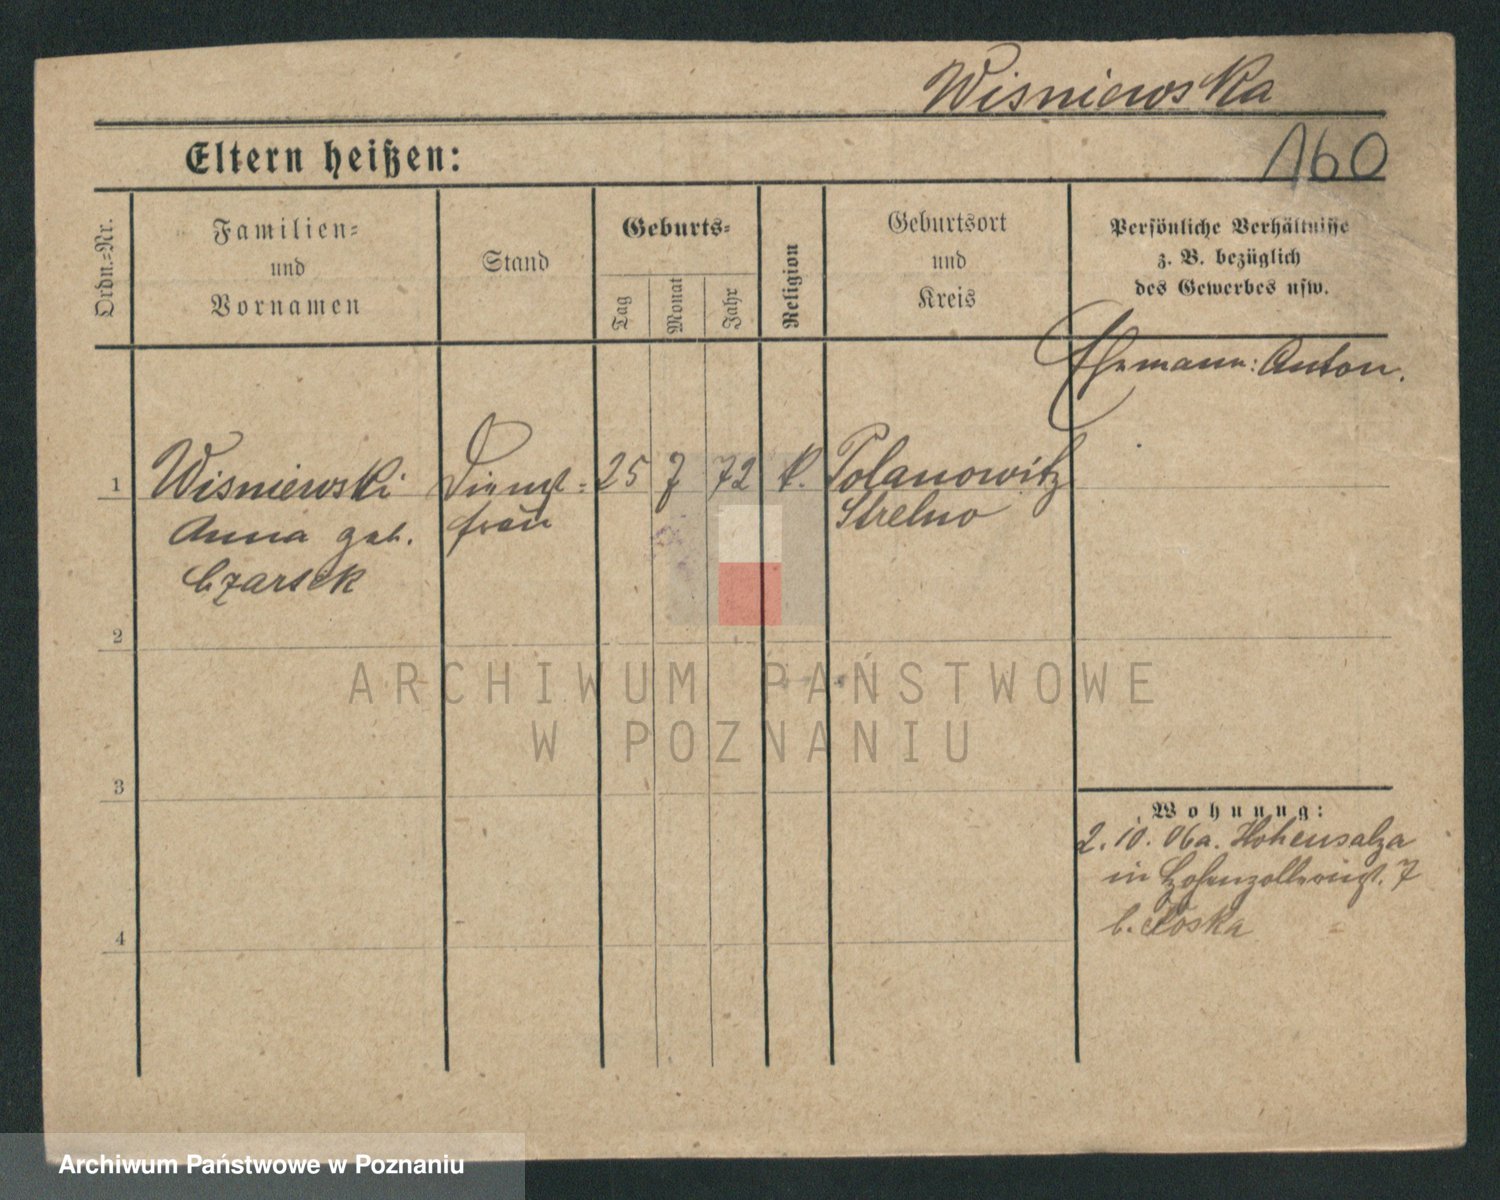 Wisniewska
160
Eltern heißen:
Ordn.-Nr.
Familien-
und
Vornamen
Stand
Geburts-
Tag
Monat
Jahr
Religion
Geburtsort
und
Kreis
Persönliche Verhältnisse
z. B. bezüglich
des Gewerbes usw.
Ehemann: Anton.
1 Wisniewski Dienst- 25 7 72 k. Polanowitz
Anna geb. frau Strelno
Czarsek
2
3
4
Wohnung:
2. 10. 06 a. Hohensalza
in Hohenzollernstr. 7
b. Koska
ARCHIWUM PAŃSTWOWE
W POZNANIU
Archiwum Państwowe w Poznaniu